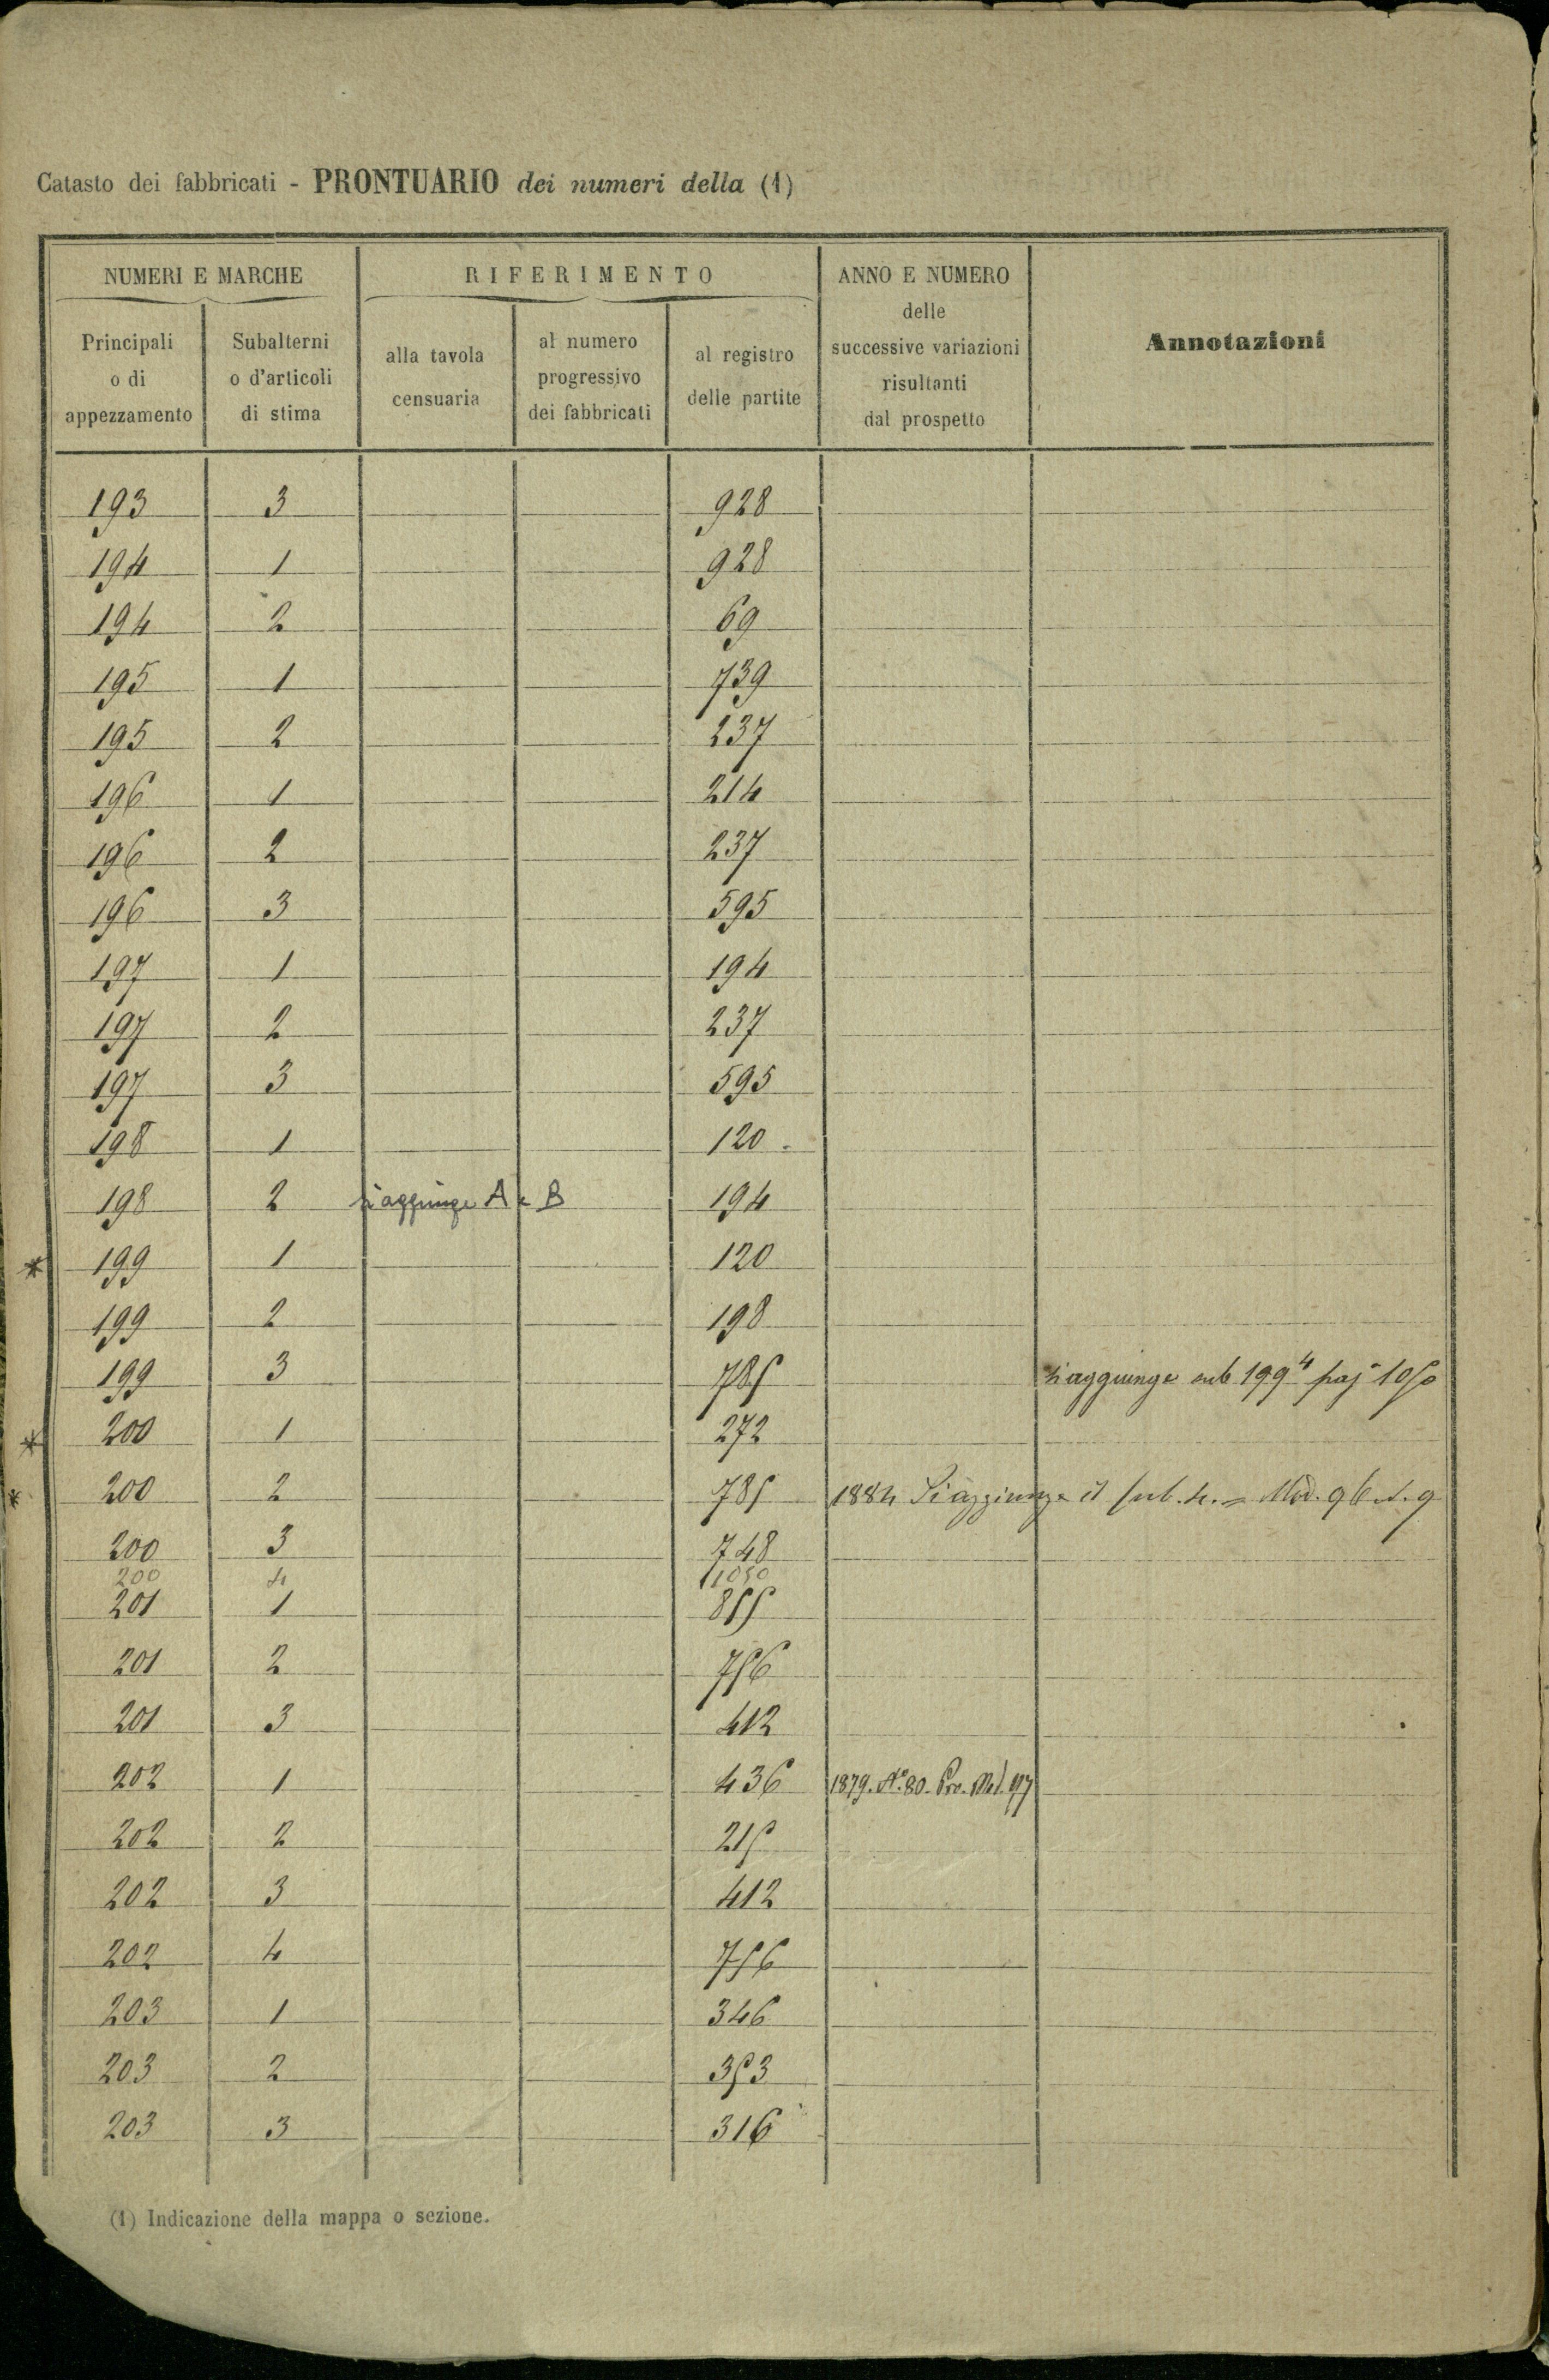 Catasto dei fabbricati - PRONTUARIO dei numeri della (1)
NUMERI E MARCHE RIFERIMENTO ANNO E NUMERO delle successive variazioni risultanti dal prospetto Annotazioni
Principali o di appezzamento Subalterni o d'articoli di stima alla tavola censuaria al numero progressivo dei fabbricati al registro delle partite
193 3 928
194 1 928
194 2 69
195 1 739
195 2 237
196 1 214
196 2 237
196 3 595
197 1 194
197 2 237
197 3 595
198 1 120
198 2 si aggiunge A e B 194
* 199 1 120
199 2 198
199 3 785 si aggiunge sub 199 4 pag 1050
* 200 1 272
* 200 2 785 1884 Si aggiunge il sub. 4. = Mod. 96 N. 9
200 3 748
200 4 1050
201 1 855
201 2 756
201 3 412
202 1 436 1879. N.° 80. Pro. Mod. 97
202 2 215
202 3 412
202 4 756
203 1 346
203 2 353
203 3 316
(1) Indicazione della mappa o sezione.